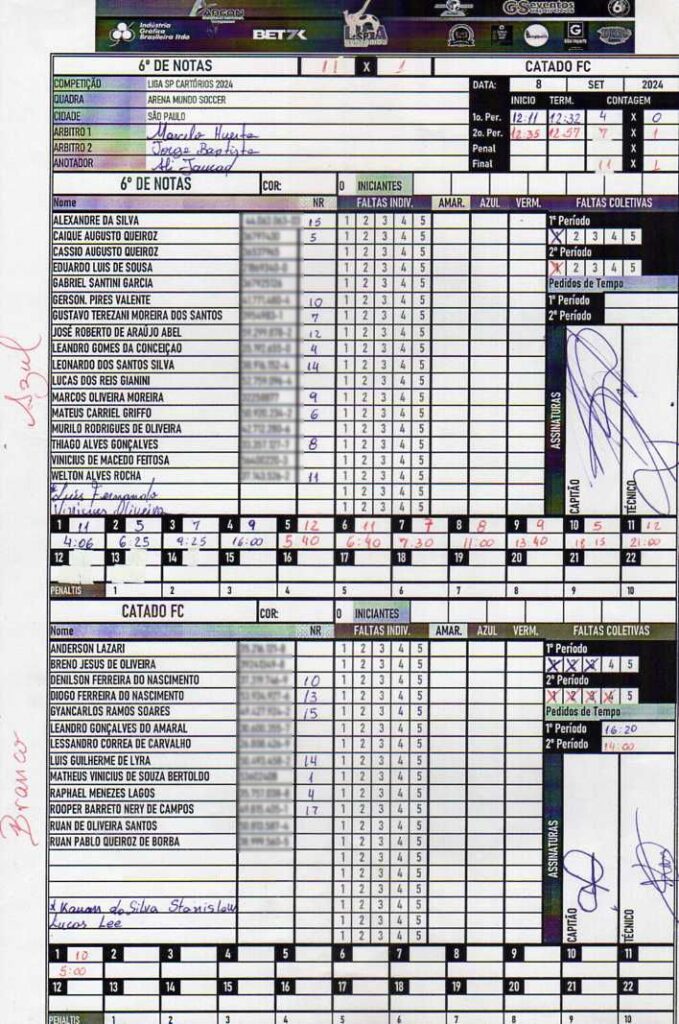 ADCON
GS eventos
Indústria Gráfica Brasileira ltda
BET7K
LIGA
6º DE NOTAS 11 X 1 CATADO FC
COMPETIÇÃO LIGA SP CARTÓRIOS 2024 DATA: 8 SET 2024
QUADRA ARENA MUNDO SOCCER INICIO TERM. CONTAGEM
CIDADE SÃO PAULO 1o. Per. 12:11 12:32 4 X 0
ARBITRO 1 Marcelo Huerta 2o. Per. 12:35 12:57 7 X 1
ARBITRO 2 Jorge Baptista Penal X
ANOTADOR Ali Final 11 X 1
6º DE NOTAS COR: 0 INICIANTES
Nome NR FALTAS INDIV. AMAR. AZUL VERM. FALTAS COLETIVAS
ALEXANDRE DA SILVA 15 1 2 3 4 5 1º Período
CAIQUE AUGUSTO QUEIROZ 5 1 2 3 4 5 X 2 3 4 5
CASSIO AUGUSTO QUEIROZ 1 2 3 4 5 2º Período
EDUARDO LUIS DE SOUSA 1 2 3 4 5 X 2 3 4 5
GABRIEL SANTINI GARCIA 1 2 3 4 5 Pedidos de Tempo
GERSON. PIRES VALENTE 10 1 2 3 4 5 1º Período
GUSTAVO TEREZANI MOREIRA DOS SANTOS 7 1 2 3 4 5 2º Período
JOSÉ ROBERTO DE ARAÚJO ABEL 12 1 2 3 4 5
LEANDRO GOMES DA CONCEIÇAO 4 1 2 3 4 5
LEONARDO DOS SANTOS SILVA 14 1 2 3 4 5
LUCAS DOS REIS GIANINI 1 2 3 4 5
MARCOS OLIVEIRA MOREIRA 9 1 2 3 4 5
MATEUS CARRIEL GRIFFO 6 1 2 3 4 5
MURILO RODRIGUES DE OLIVEIRA 1 2 3 4 5
THIAGO ALVES GONÇALVES 8 1 2 3 4 5
VINICIUS DE MACEDO FEITOSA 1 2 3 4 5
WELTON ALVES ROCHA 11 1 2 3 4 5
Luis Fernando 1 2 3 4 5
Vinicius Oliveira 1 2 3 4 5
ASSINATURAS
CAPITÃO
TÉCNICO
Azul
1 11 2 5 3 7 4 9 5 12 6 11 7 7 8 8 9 9 10 5 11 12
4:06 6:25 9:25 16:00 5 40 6:40 7.30 11:00 13:40 18 15 21:00
12 13 14 15 16 17 18 19 20 21 22
PENALTIS 1 2 3 4 5 6 7 8 9 10
CATADO FC COR: 0 INICIANTES
Nome NR FALTAS INDIV. AMAR. AZUL VERM. FALTAS COLETIVAS
ANDERSON LAZARI 1 2 3 4 5 1º Período
BRENO JESUS DE OLIVEIRA 1 2 3 4 5 X X X 4 5
DENILSON FERREIRA DO NASCIMENTO 10 1 2 3 4 5 2º Período
DIOGO FERREIRA DO NASCIMENTO 13 1 2 3 4 5 X X X X 5
GYANCARLOS RAMOS SOARES 15 1 2 3 4 5 Pedidos de Tempo
LEANDRO GONÇALVES DO AMARAL 1 2 3 4 5 1º Período 16:20
LESSANDRO CORREA DE CARVALHO 1 2 3 4 5 2º Período 14:00
LUIS GUILHERME DE LYRA 14 1 2 3 4 5
MATHEUS VINICIUS DE SOUZA BERTOLDO 1 1 2 3 4 5
RAPHAEL MENEZES LAGOS 4 1 2 3 4 5
ROOPER BARRETO NERY DE CAMPOS 17 1 2 3 4 5
RUAN DE OLIVEIRA SANTOS 1 2 3 4 5
RUAN PABLO QUEIROZ DE BORBA 1 2 3 4 5
1 2 3 4 5
1 2 3 4 5
1 2 3 4 5
Kauan da Silva Stanislaw 1 2 3 4 5
Lucas Lee 1 2 3 4 5
1 2 3 4 5
ASSINATURAS
CAPITÃO
TÉCNICO
Branco
1 10 2 3 4 5 6 7 8 9 10 11
5:00
12 13 14 15 16 17 18 19 20 21 22
PENALTIS 1 2 3 4 5 6 7 8 9 10